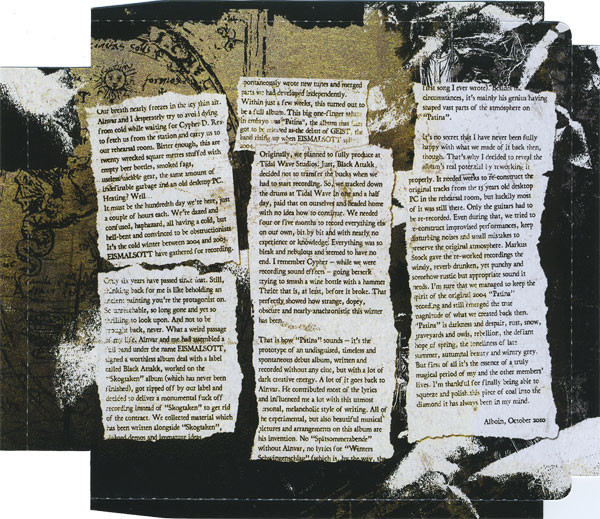 Our breath nearly freezes in the icy thin air.
Ainvar and I desperately try to avoid dying
from cold while waiting for Cypher D. Rex
to fetch us from the station and carry us to
our rehearsal room. Bitter enough, this are
twenty wrecked square metres stuffed with
empty beer bottles, smoked fags,
useless/usable gear, the same amount of
indefinable garbage and an old desktop PC.
Heating? Well...
It must be the hundredth day we're here, just
a couple of hours each. We're dazed and
confused, haphazard, all having a cold, but
hell-bent and convinced to be obstructionists.
It's the cold winter between 2004 and 2005.
EISMALSOTT have gathered for recording.
Only six years have passed since then. Still,
thinking back for me is like beholding an
ancient painting you're the protagonist on.
So unreachable, so long gone and yet so
thrilling to look upon. And not to be
brought back, never. What a weird passage
of my life. Ainvar and me had assembled a
full band under the name EISMALSOTT,
signed a worthless album deal with a label
called Black Attakk, worked on the
"Skogtaken" album (which has never been
finished), got ripped off by our label and
decided to deliver a monumental fuck off
recording instead of "Skogtaken" to get rid
of the contract. We collected material which
has been written alongside "Skogtaken",
demos and immature ideas
spontaneously wrote new tunes and merged
parts we had developed independently.
Within just a few weeks, this turned out to
be a full album. This big one-finger salute
in embryo was "Patina", the album that later
got to be released as the debut of GEIST, the
band rising up when EISMALSOTT
Originally, we planned to fully produce at
Tidal Wave Studios. Just, Black Attakk,
decided not to transfer the bucks when we
had to start recording. So, we tracked down
the drums at Tidal Wave in one and a half
day, paid that on ourselves and headed home
with no idea how to continue. We needed
four or five months to record everything else
on our own, bit by bit and with nearly no
experience or knowledge. Everything was so
bleak and nebulous and seemed to have no
end. I remember Cypher – while we were
recording sound effects – going berserk
trying to smash a wine bottle with a hammer.
Thrice that is, at least, before it broke. That
perfectly showed how strange, dopey,
obscure and nearly-anachronistic this winter
has been.
That is how "Patina" sounds – it's the
prototype of an undisguised, timeless and
spontaneous debut album, written and
recorded without any clue, but with a lot of
dark creative energy. A lot of it goes back to
Ainvar. He contributed most of the lyrics
and influenced me a lot with this utmost
tonal, melancholic style of writing. All of
the experimental, but also beautiful musical
pictures and arrangements on this album are
his invention. No "Spätsommerabende"
without Ainvar, no lyrics for "Winters
Schwingenschlag" (which is, by the way, the
first song I ever wrote). Besides the
circumstances, it's mainly his genius having
shaped vast parts of the atmosphere on
"Patina".
It's no secret that I have never been fully
happy with what we made of it back then,
though. That's why I decided to reveal the
album's real potential by reworking it
properly. It needed weeks to re-construct the
original tracks from the 15 years old desktop
PC in the rehearsal room, but luckily most
of it was still there. Only the guitars had to
be re-recorded. Even during that, we tried to
re-construct improvised performances, keep
disturbing noises and small mistakes to
preserve the original atmosphere. Markus
Stock gave the re-worked recordings the
windy, reverb-drunken, yet punchy and
somehow rustic but appropriate sound it
needs. I'm sure that we managed to keep the
spirit of the original 2004 "Patina"
recording and still emerged the true
magnitude of what we created back then.
"Patina" is darkness and despair, rust, snow,
graveyards and owls, rebellion, the defiant
hope of spring, the loneliness of late
summer, autumnal beauty and wintry grey.
But first of all it's the essence of a truly
magical period of my and the other members'
lives. I'm thankful for finally being able to
squeeze and polish this piece of coal into the
diamond it has always been in my mind.
Alboin, October 2010